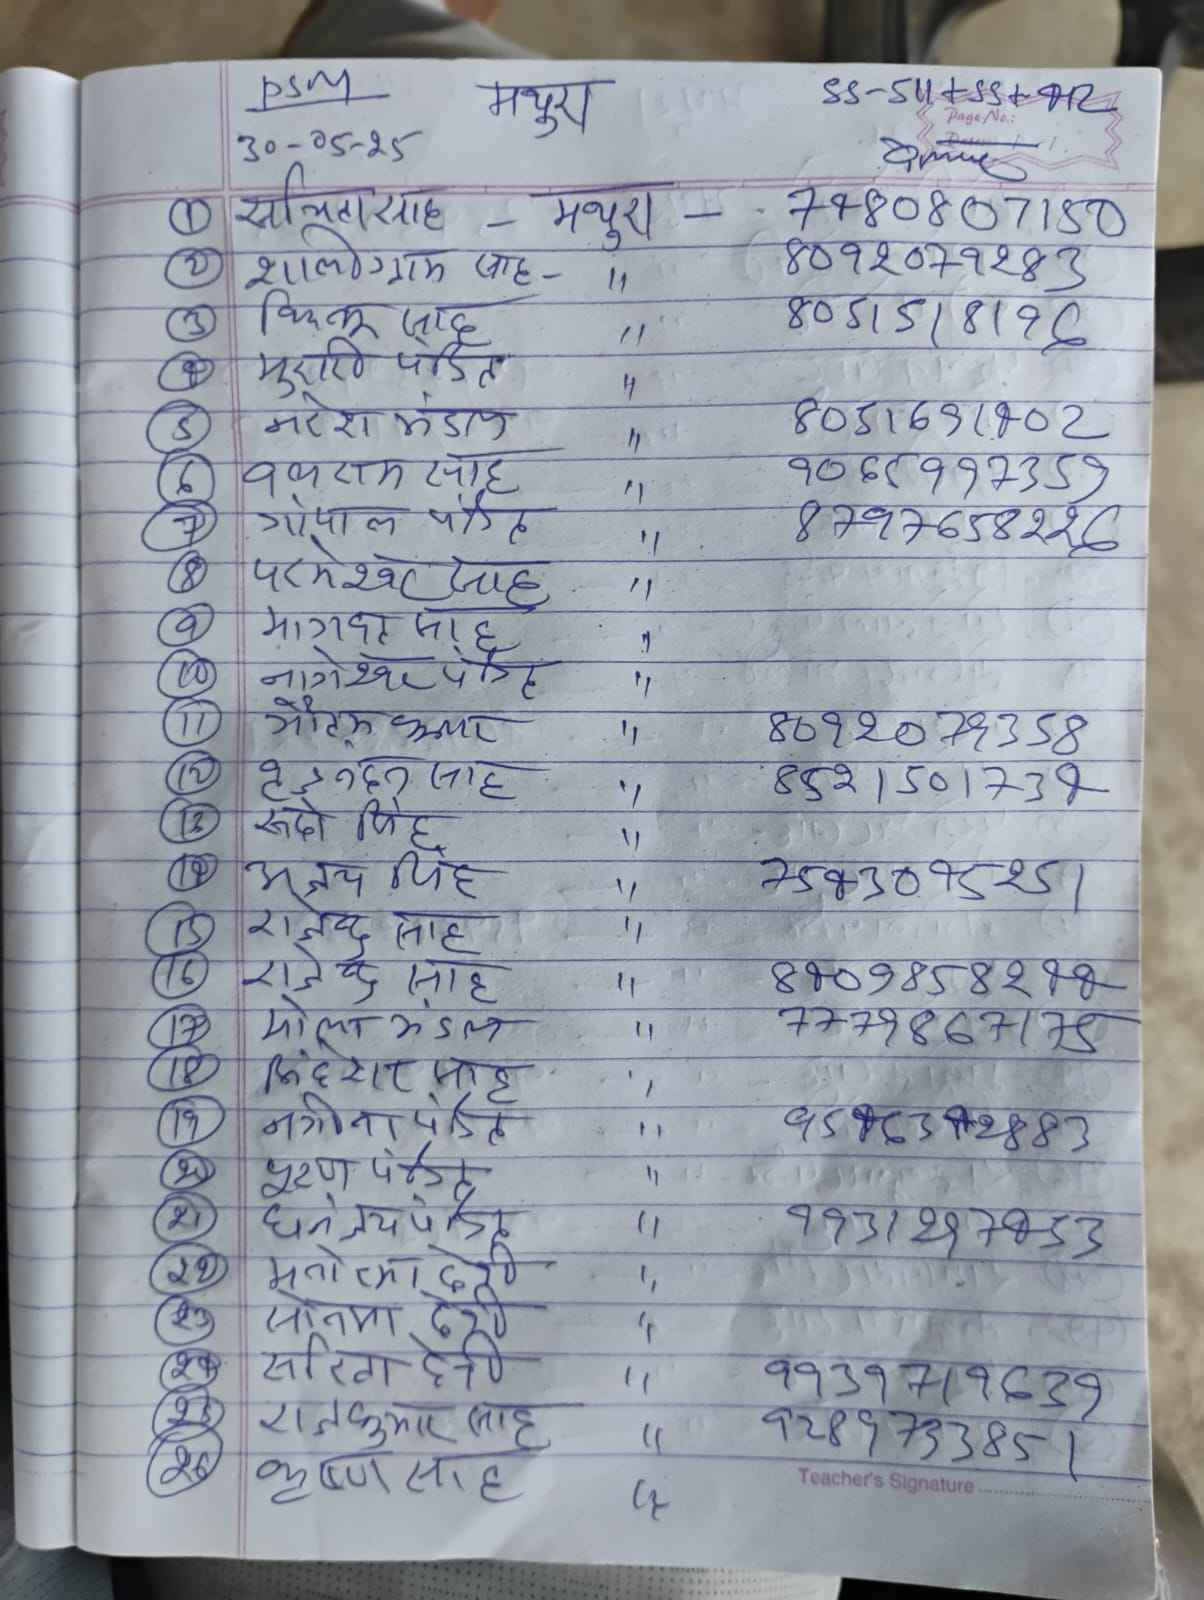 PSM मथुरा SS-511+SS+92
Page No.:
30-05-25
① ललिता साह - मथुरा - 7480807150
② शालीग्राम साह - " 8092079283
③ साह " 8051518196
④ मुरारी पंडित "
⑤ नरेश मंडल " 8051691402
⑥ बलराम साह " 9065997359
⑦ गोपाल पंडित " 8797658226
⑧ परमेश्वर साह "
⑨ भागवत साह "
⑩ नागेश्वर पंडित "
⑪ गौतम कुमार " 8092079358
⑫ साह " 8521501734
⑬ रूदो सिंह "
⑭ अजय सिंह " 7543095251
⑮ राजेन्द्र साह "
⑯ राजेन्द्र साह " 8409858244
⑰ भोला मंडल " 7779867175
⑱ साह "
⑲ नगीना पंडित "
⑳ पुरण पंडित "
㉑ धनंजय पंडित " 9931297453
㉒ मनोरमा देवी "
㉓ सोनमा देवी "
㉔ सरिता देवी " 9939719639
㉕ राजकुमार साह " 9289733851
㉖ कृष्ण साह "
Teacher's Signature